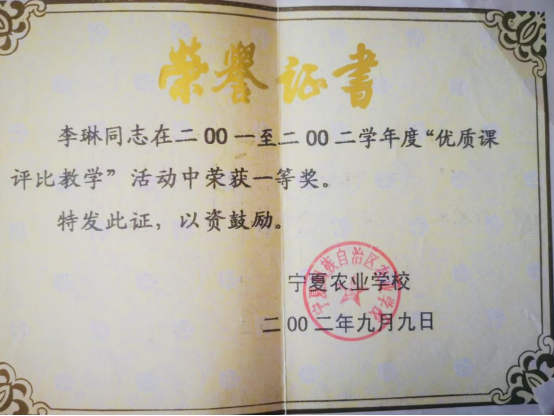 荣誉证书
李琳同志在二00一至二00二学年度“优质课
评比教学”活动中荣获一等奖。
特发此证，以资鼓励。
宁夏农业学校
二00二年九月九日